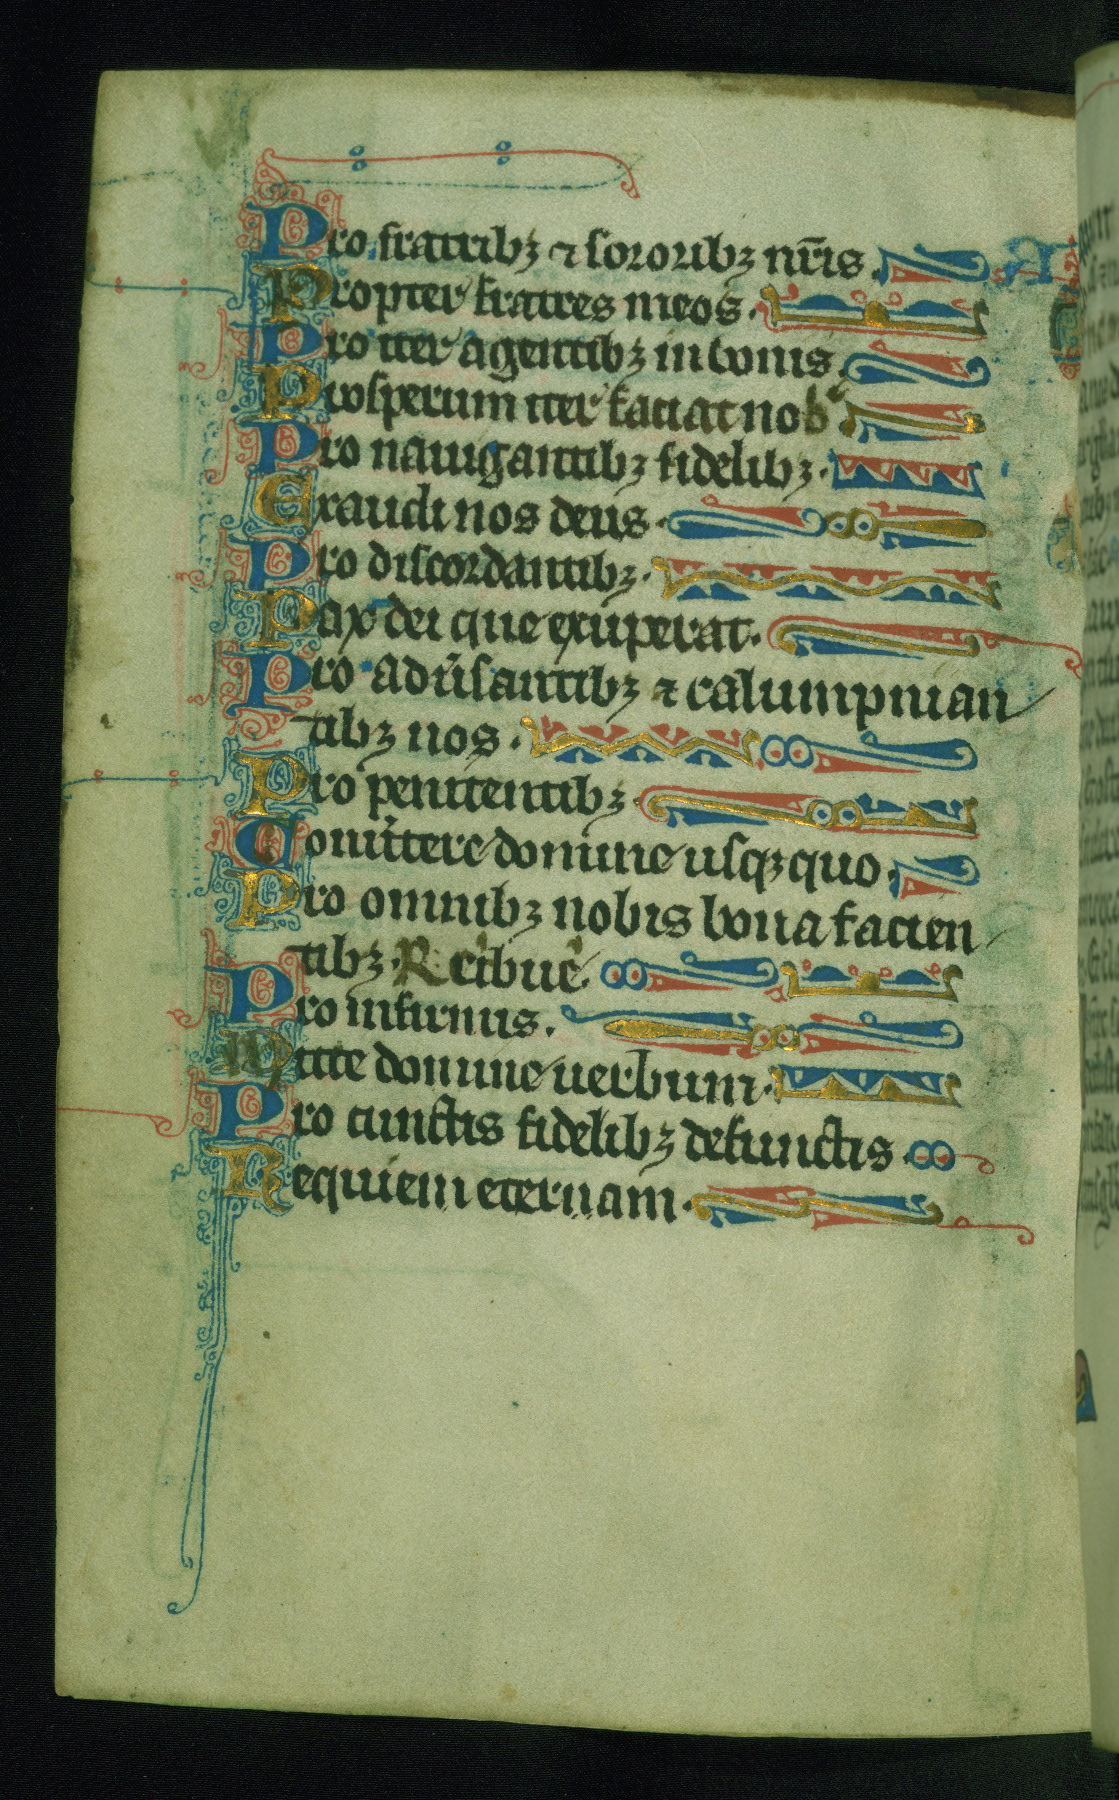 Pro fratribꝫ ⁊ sororibꝫ nr̄is.
Propter fratres meos.
Pro iter agentibꝫ in bonis.
Prosperum iter faciat nob
Pro nauigantibꝫ fidelibꝫ.
Exaudi nos deus.
Pro discordantibꝫ.
Pax dei que exuperat.
Pro adu͛santibꝫ ⁊ calumpnian
tibꝫ nos.
Pro penitentibꝫ.
Conu͛tere domine usqꝫ quo.
Pro omnibꝫ nobis bona facien
tibꝫ. Retibue
Pro infirmis.
Mitte domine uerbum.
Pro cunctis fidelibꝫ defunctis.
Requiem eternam.